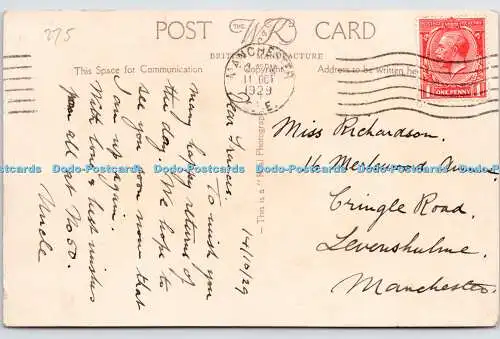 275
POST CARD
THE RP
BRITISH MANUFACTURE
This Space for Communication
Copyright
Address to be written here
MANCHESTER
11 OCT
1929
E.
ONE PENNY
This is a "Real Photograph"
14/10/29
Dear Frances.
To wish you
many happy returns of
the day. We hope to
see you soon now that
I am up again.
With love & best wishes
from all at No 50.
Uncle
Miss Richardson.
16 Avenue
Cringle Road.
Levenshulme.
Manchester.
Dodo-Postcards Dodo-Postcards Dodo-Postcards Dodo-Postcards